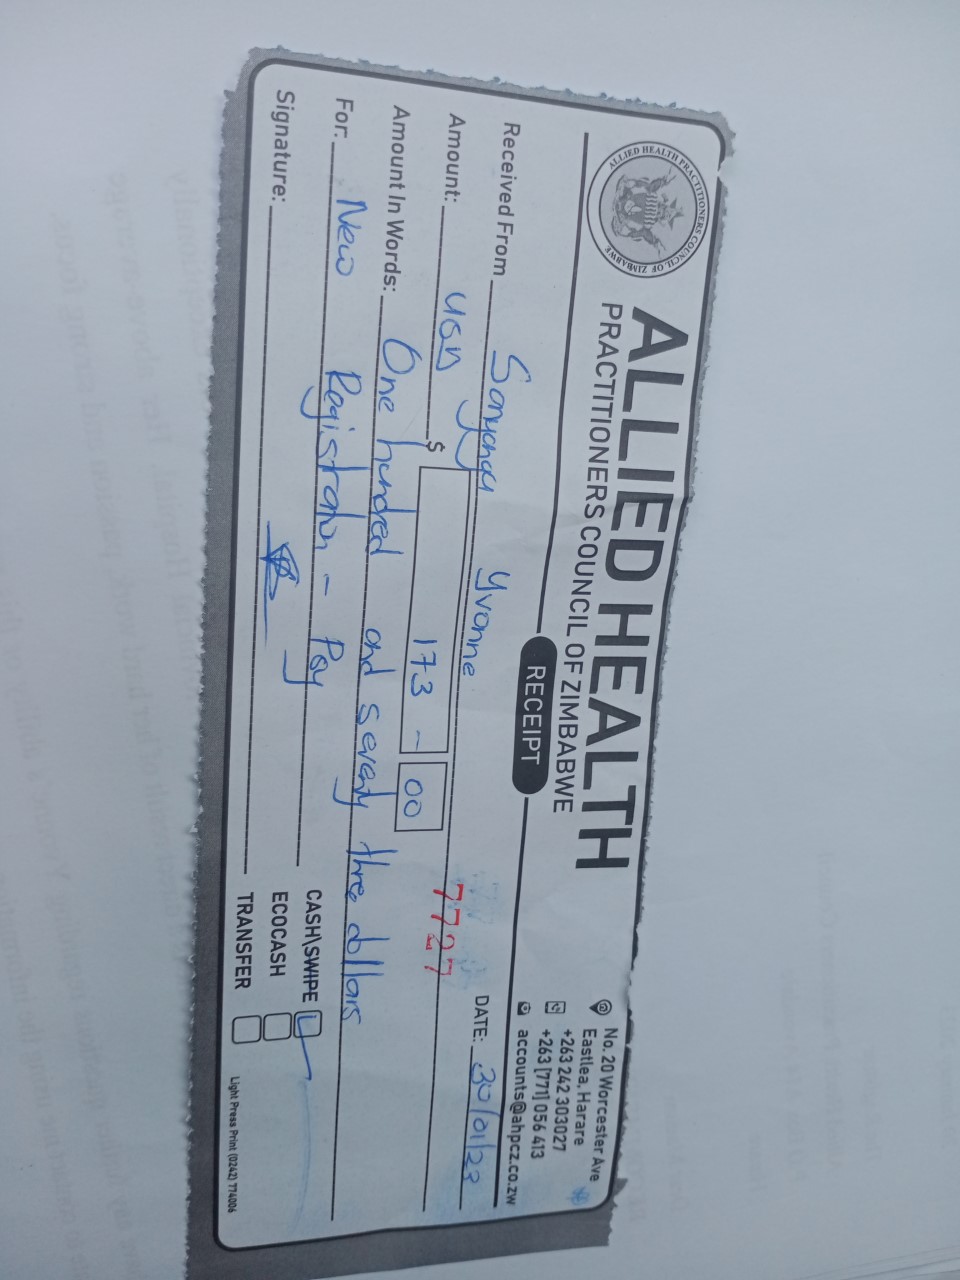 ALLIED HEALTH PRACTITIONERS COUNCIL OF ZIMBABWE
ALLIED HEALTH
PRACTITIONERS COUNCIL OF ZIMBABWE
No. 20 Worcester Ave
Eastlea, Harare
+263 242 303027
+263 [771] 056 413
accounts@ahpcz.co.zw
RECEIPT
DATE: 30/01/23
Received From Yvonne
7727
Amount: USD $ 173 - 00
Amount In Words: One hundred and seventy three dollars
For: New Registration - Pay
CASH\SWIPE
ECOCASH
Signature:
TRANSFER
Light Press Print (0242) 774006